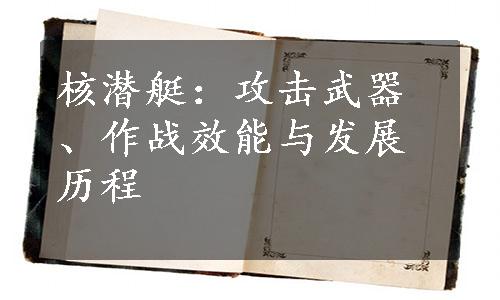 核潜艇：攻击武器
、作战效能与发展
历程